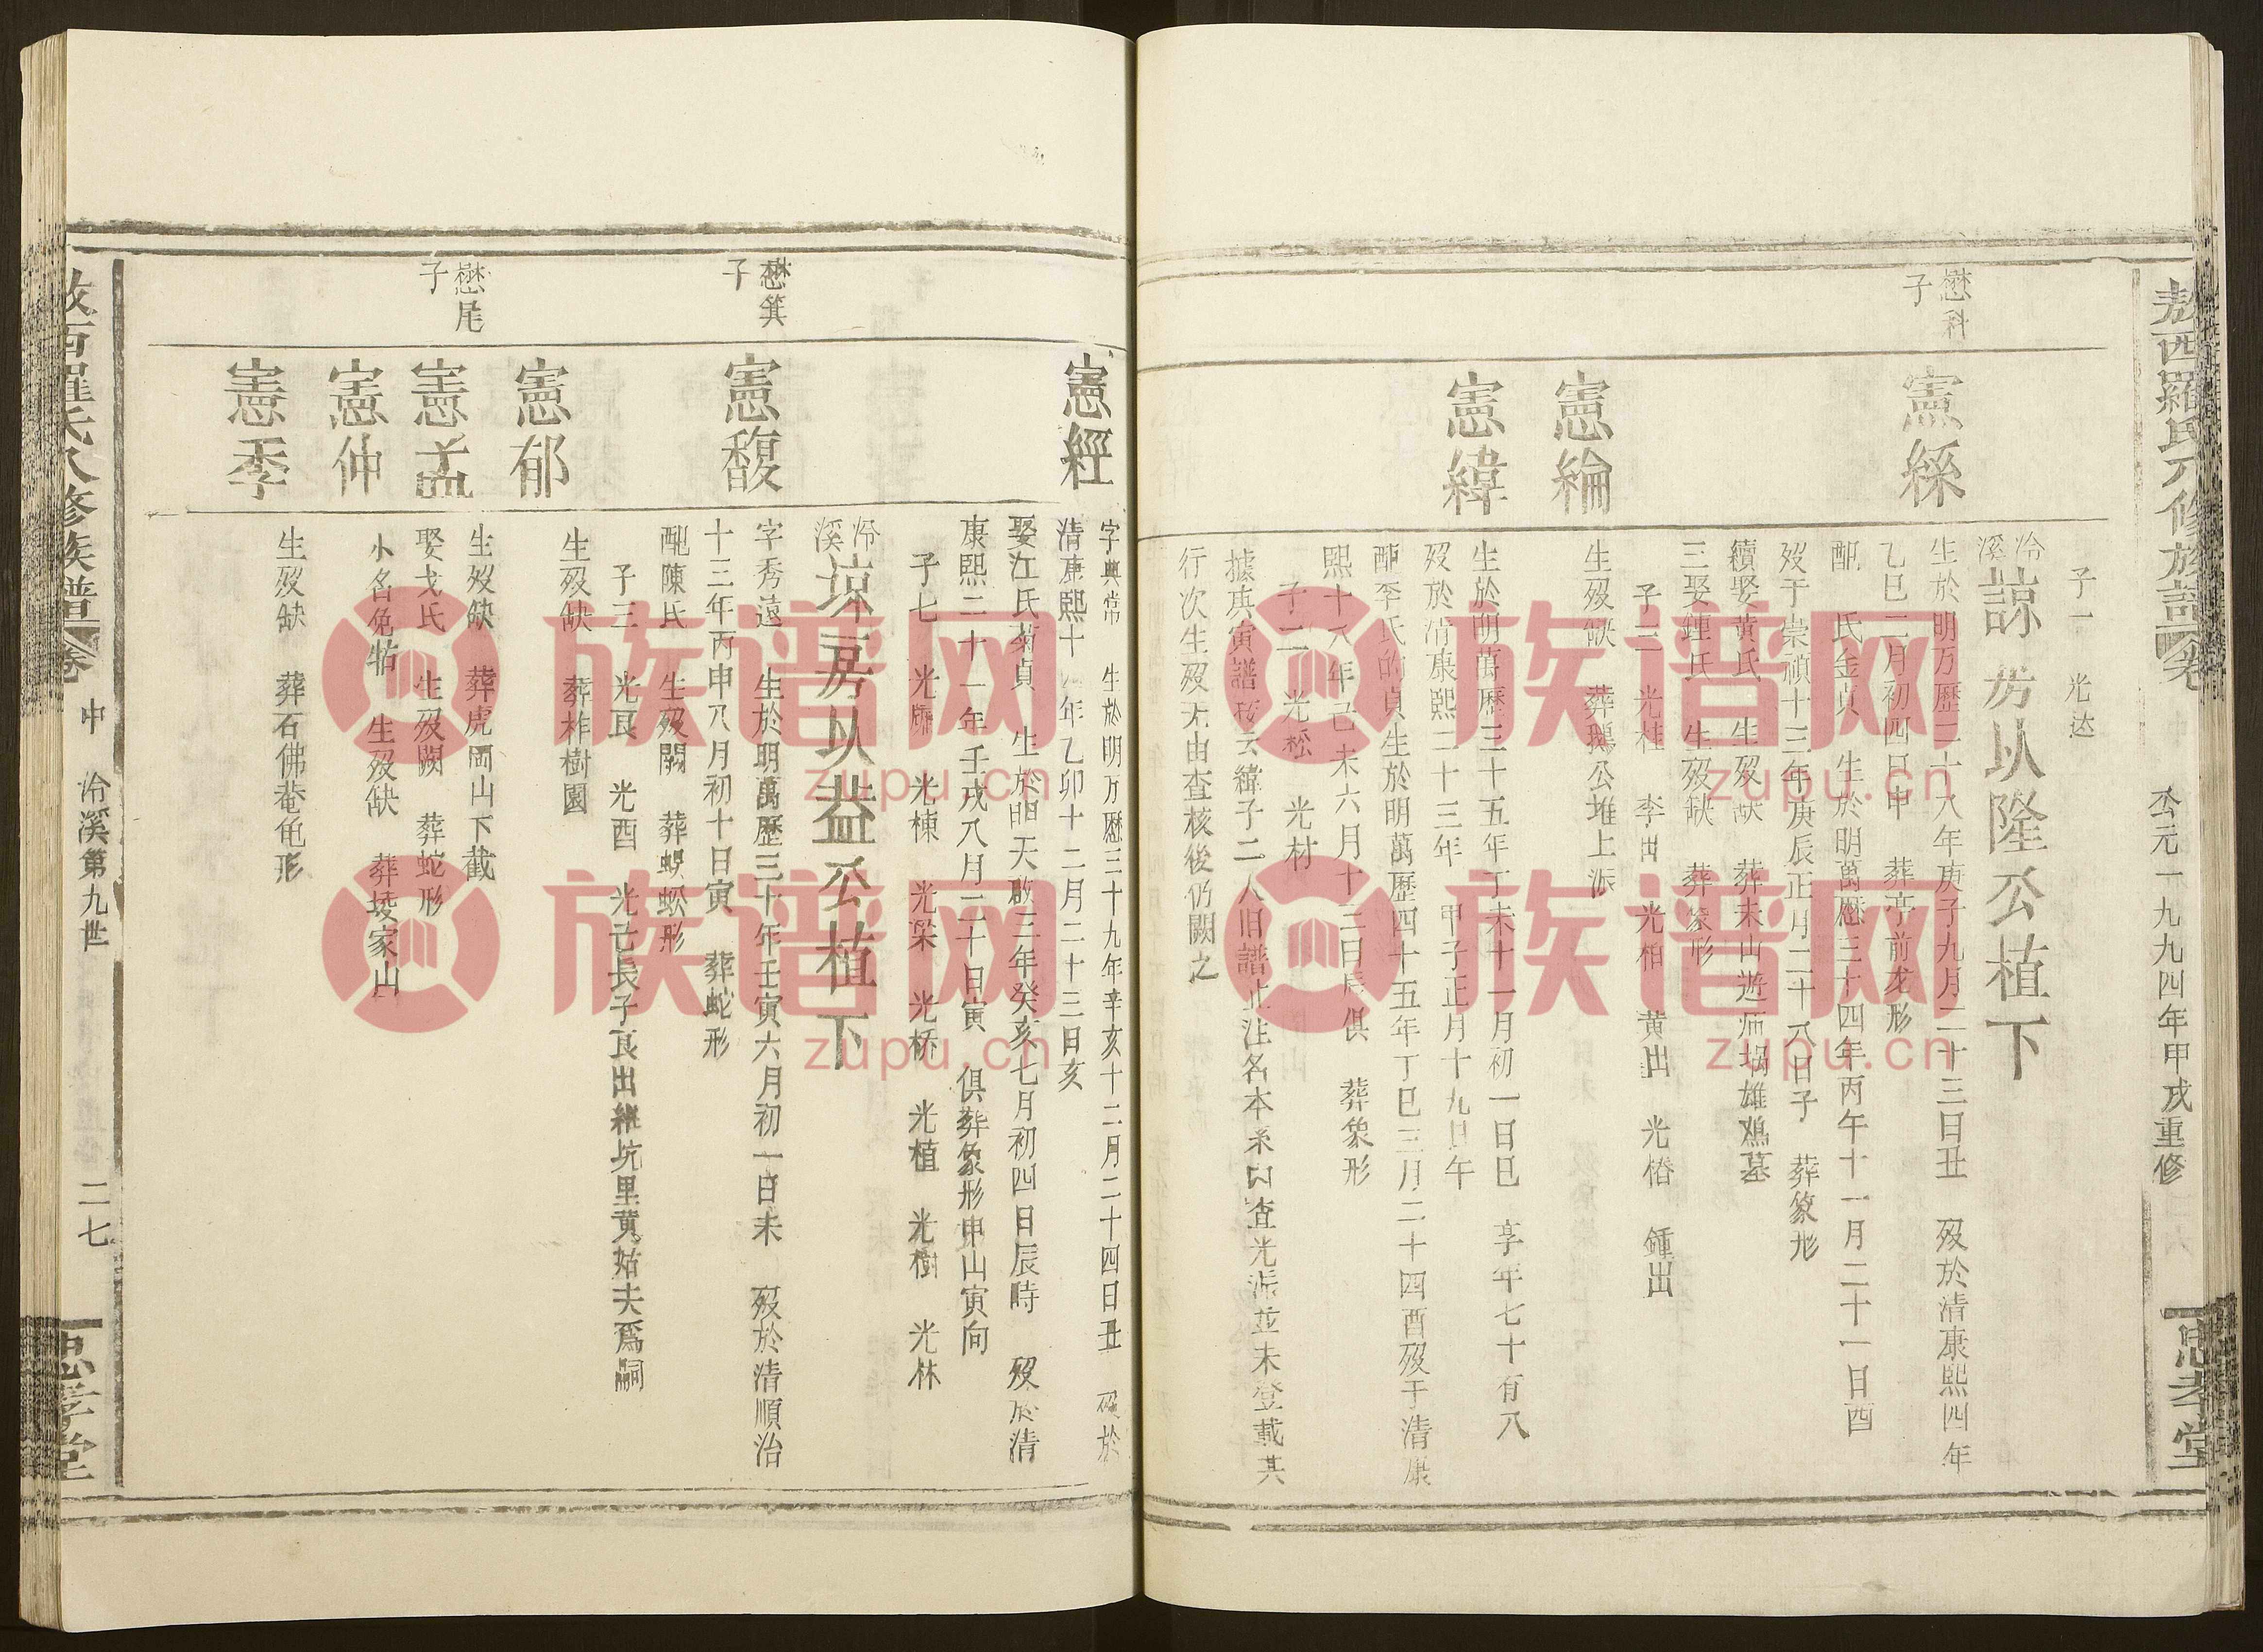 敖西羅氏八修族譜 卷
公元一九九四年甲戌重修
忠孝堂
子一 光达
泠溪 諒房以隆公植下
懋科子
憲絲
生於明万歷二十八年庚子九月二十三日丑 殁於清康熙四年
乙巳二月初四日申 葬亭前龙形
配 氏金貞 生於明萬歷三十四年丙午十一月二十一日酉
殁于崇禎十三年庚辰正月二十八日子 葬篆形
續娶黄氏 生殁缺 葬未山遊师塌雄鸡墓
三娶鍾氏 生殁缺 葬篆形
子三 光桂 李出 光柏 黄出 光椿 鍾出
憲綸
生殁缺 葬鵝公堆上派
憲緯
生於明萬歷三十五年丁未十一月初一日巳 享年七十有八
殁於清康熙二十三年 甲子正月十九日午
配李氏的貞生於明萬歷四十五年丁巳三月二十四酉殁于清康
熙十八年己未六月十二日辰 俱 葬象形
子二 光松 光材
據庚寅譜 云緯子二人旧譜止注名本系 查光派並未登載其
行次生殁无由查核後仍闕之
憲經
字典常 生於明万歷三十九年辛亥十二月二十四日丑 殁於
清康熙十 年乙卯十二月二十三日亥
娶江氏菊貞 生於明天啟三年癸亥七月初四日辰時 殁於清
康熙二十一年壬戌八月二十日寅 俱葬象形申山寅向
子七 光 光棟 光梁 光桥 光植 光樹 光林
泠溪 諒房以益公植下
懋箕子
憲馥
字秀遠 生於明萬歷三十年壬寅六月初一日未 殁於清順治
十三年丙申八月初十日寅 葬蛇形
配陳氏 生殁闕 葬蜈蚣形
子三 光艮 光酉 光己長子艮出継坑里黄姑夫爲嗣
憲郁
生殁缺 葬柞樹園
懋尾子
憲孟
生殁缺 葬虎岡山下截
娶戈氏 生殁闕 葬蛇形
憲仲
小名兔牯 生殁缺 葬堎家山
憲季
生殁缺 葬石佛菴龟形
敖西羅氏八修族譜 卷 中 泠溪第九世 二七
忠孝堂
族谱网
zupu.cn
族谱网
zupu.cn
族谱网
zupu.cn
族谱网
zupu.cn